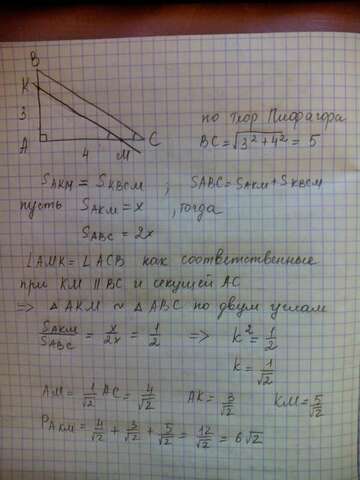 B
K
3
A
4
M
C
по теор Пифагора
BC = √3² + 4² = 5
S AKM = S KBCM ; S ABC = S AKM + S KBCM
пусть S AKM = x , тогда
S ABC = 2x
∠AMK = ∠ACB как соответственные
при KM || BC и секущей AC
=> △AKM ~ △ABC по двум углам
S AKM / S ABC = x / 2x = 1/2 => k² = 1/2
k = 1/√2
AM = 1/√2 AC = 4/√2 AK = 3/√2 KM = 5/√2
P AKM = 4/√2 + 3/√2 + 5/√2 = 12/√2 = 6√2